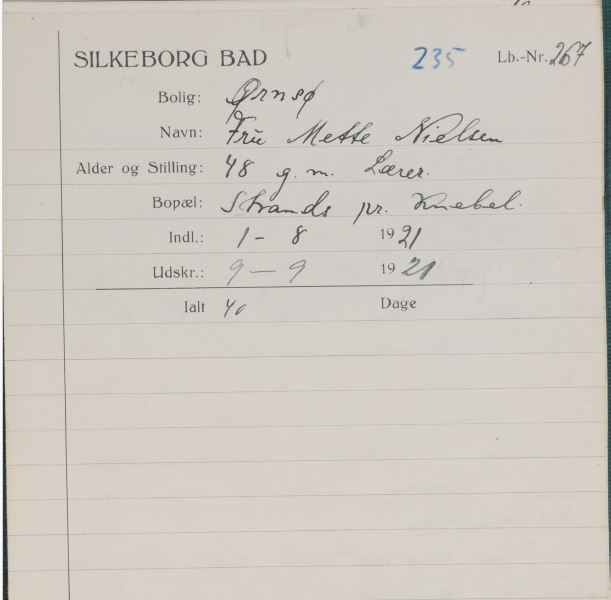 SILKEBORG BAD 235 Lb.-Nr. 267
Bolig: Ørnsø
Navn: Fru Mette Nielsen
Alder og Stilling: 48 g. m. Lærer.
Bopæl: Strands pr. Knebel.
Indl.: 1 - 8 1921
Udskr.: 9 - 9 1921
Ialt 40 Dage